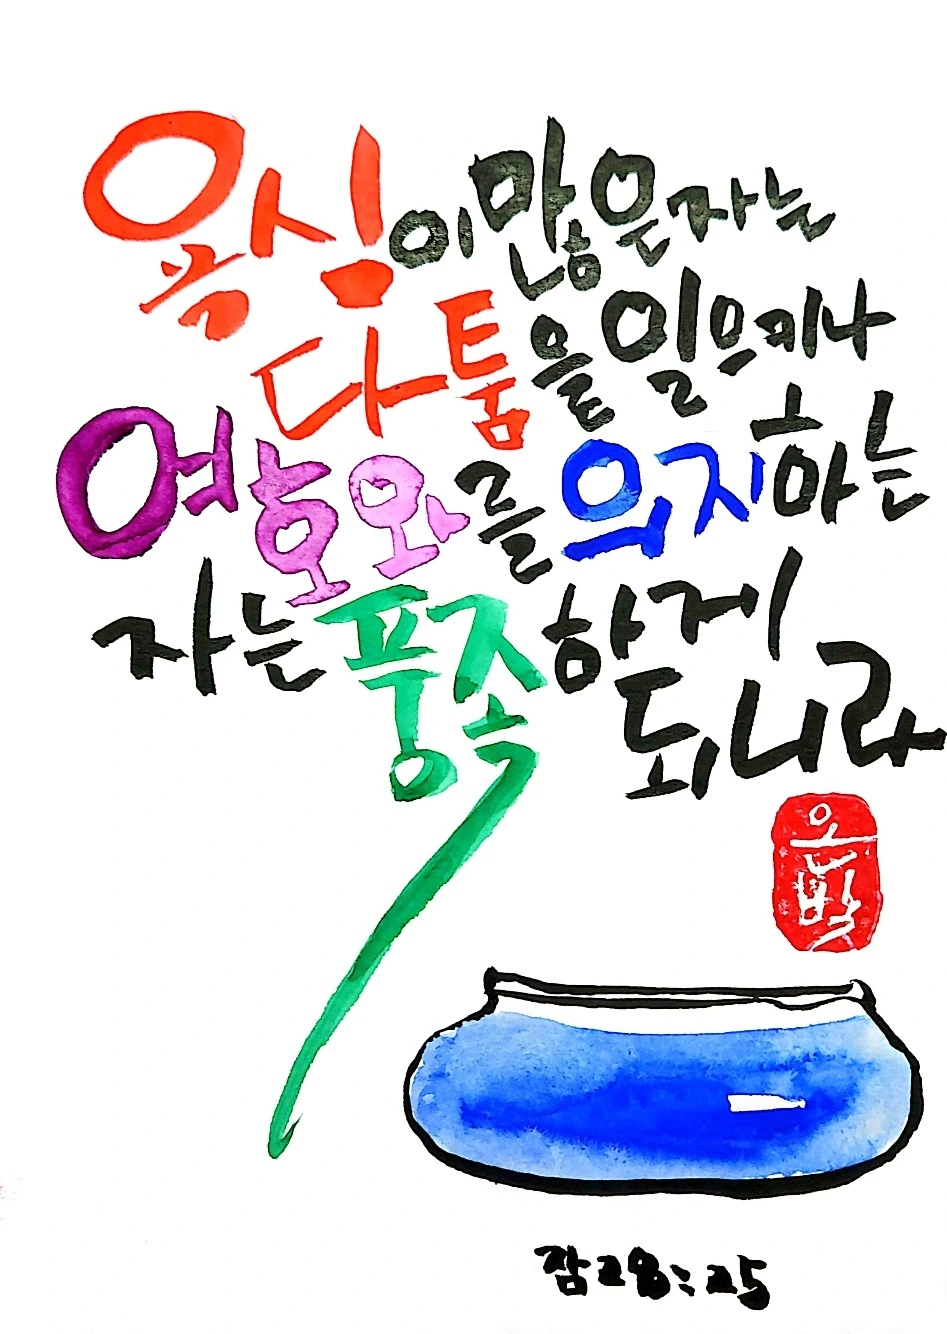 욕심이 많은 자는
다툼을 일으키나
여호와를 의지하는
자는 풍족하게
되니라
잠28:25